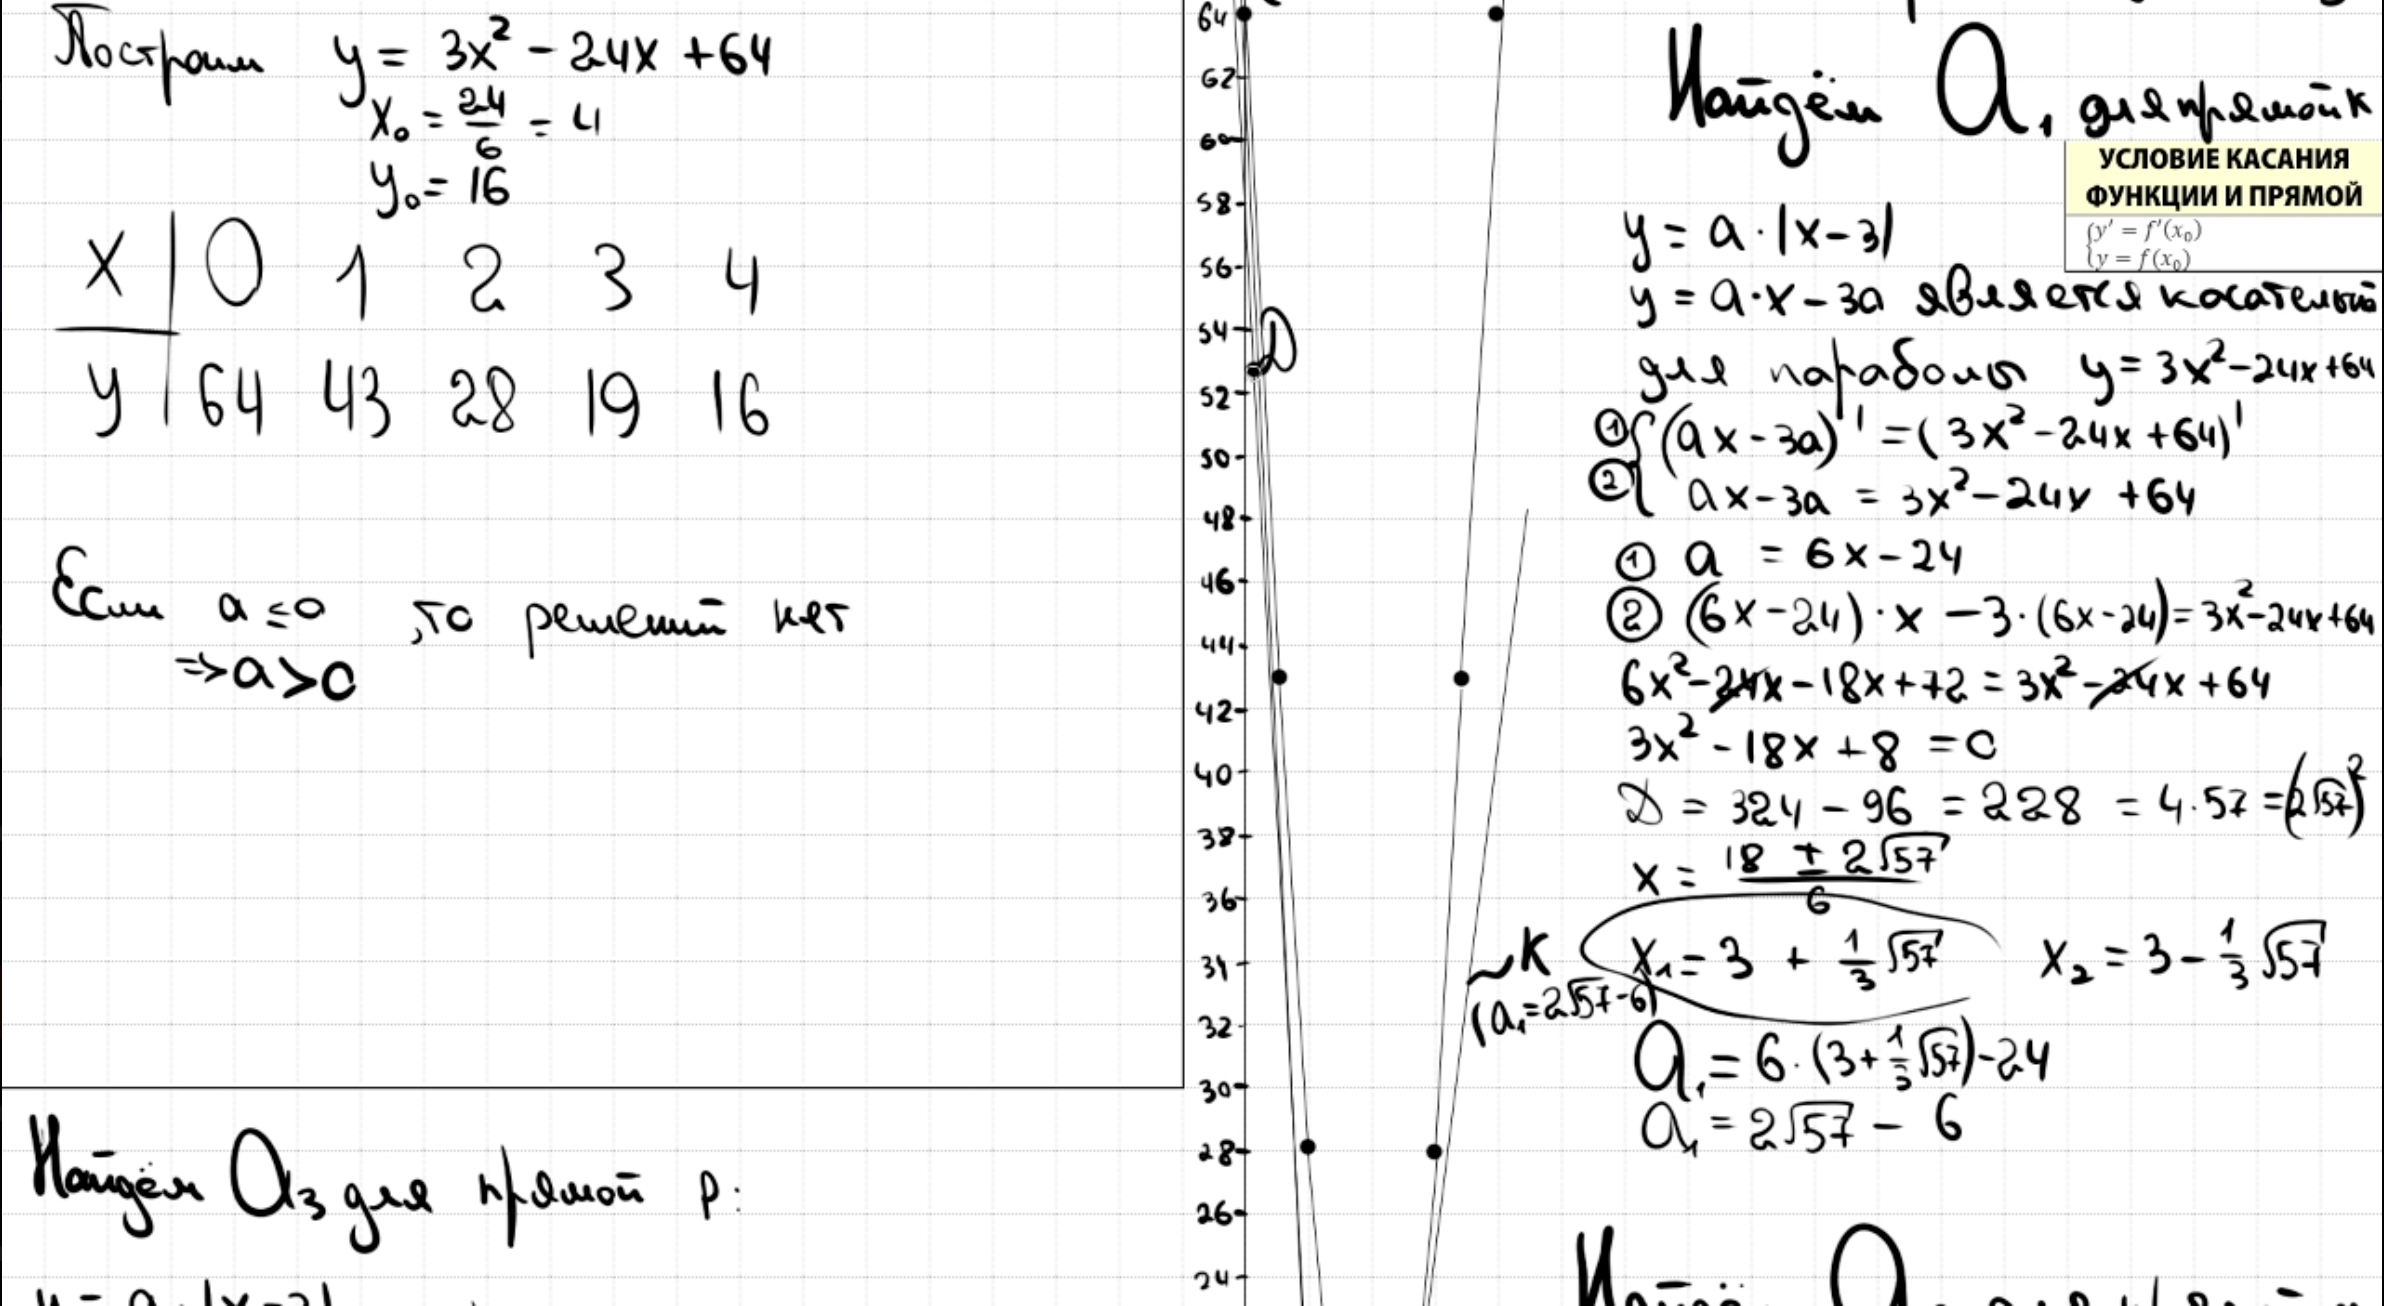 Построим y = 3x² - 24x + 64
x₀ = 24/6 = 4
y₀ = 16
x | 0 1 2 3 4
y | 64 43 28 19 16
Если a ≤ 0 , то решений нет
=> a > 0
Найдём a₃ для прямой p:
64
62
60
58
56
54
D
52
50
48
46
44
42
40
38
36
34
32
30
28
26
24
K
(a₁ = 2√57 - 6)
Найдём a₁ для прямой K
УСЛОВИЕ КАСАНИЯ
ФУНКЦИИ И ПРЯМОЙ
{y' = f'(x₀)
{y = f(x₀)
y = a · |x - 3|
y = a · x - 3a является касательной
для параболы y = 3x² - 24x + 64
① {(ax - 3a)' = (3x² - 24x + 64)'
② { ax - 3a = 3x² - 24x + 64
① a = 6x - 24
② (6x - 24) · x - 3 · (6x - 24) = 3x² - 24x + 64
6x² - 24x - 18x + 72 = 3x² - 24x + 64
3x² - 18x + 8 = 0
D = 324 - 96 = 228 = 4 · 57 = (2√57)²
x = (18 ± 2√57)/6
x₁ = 3 + 1/3 √57 x₂ = 3 - 1/3 √57
a₁ = 6 · (3 + 1/3 √57) - 24
a₁ = 2√57 - 6